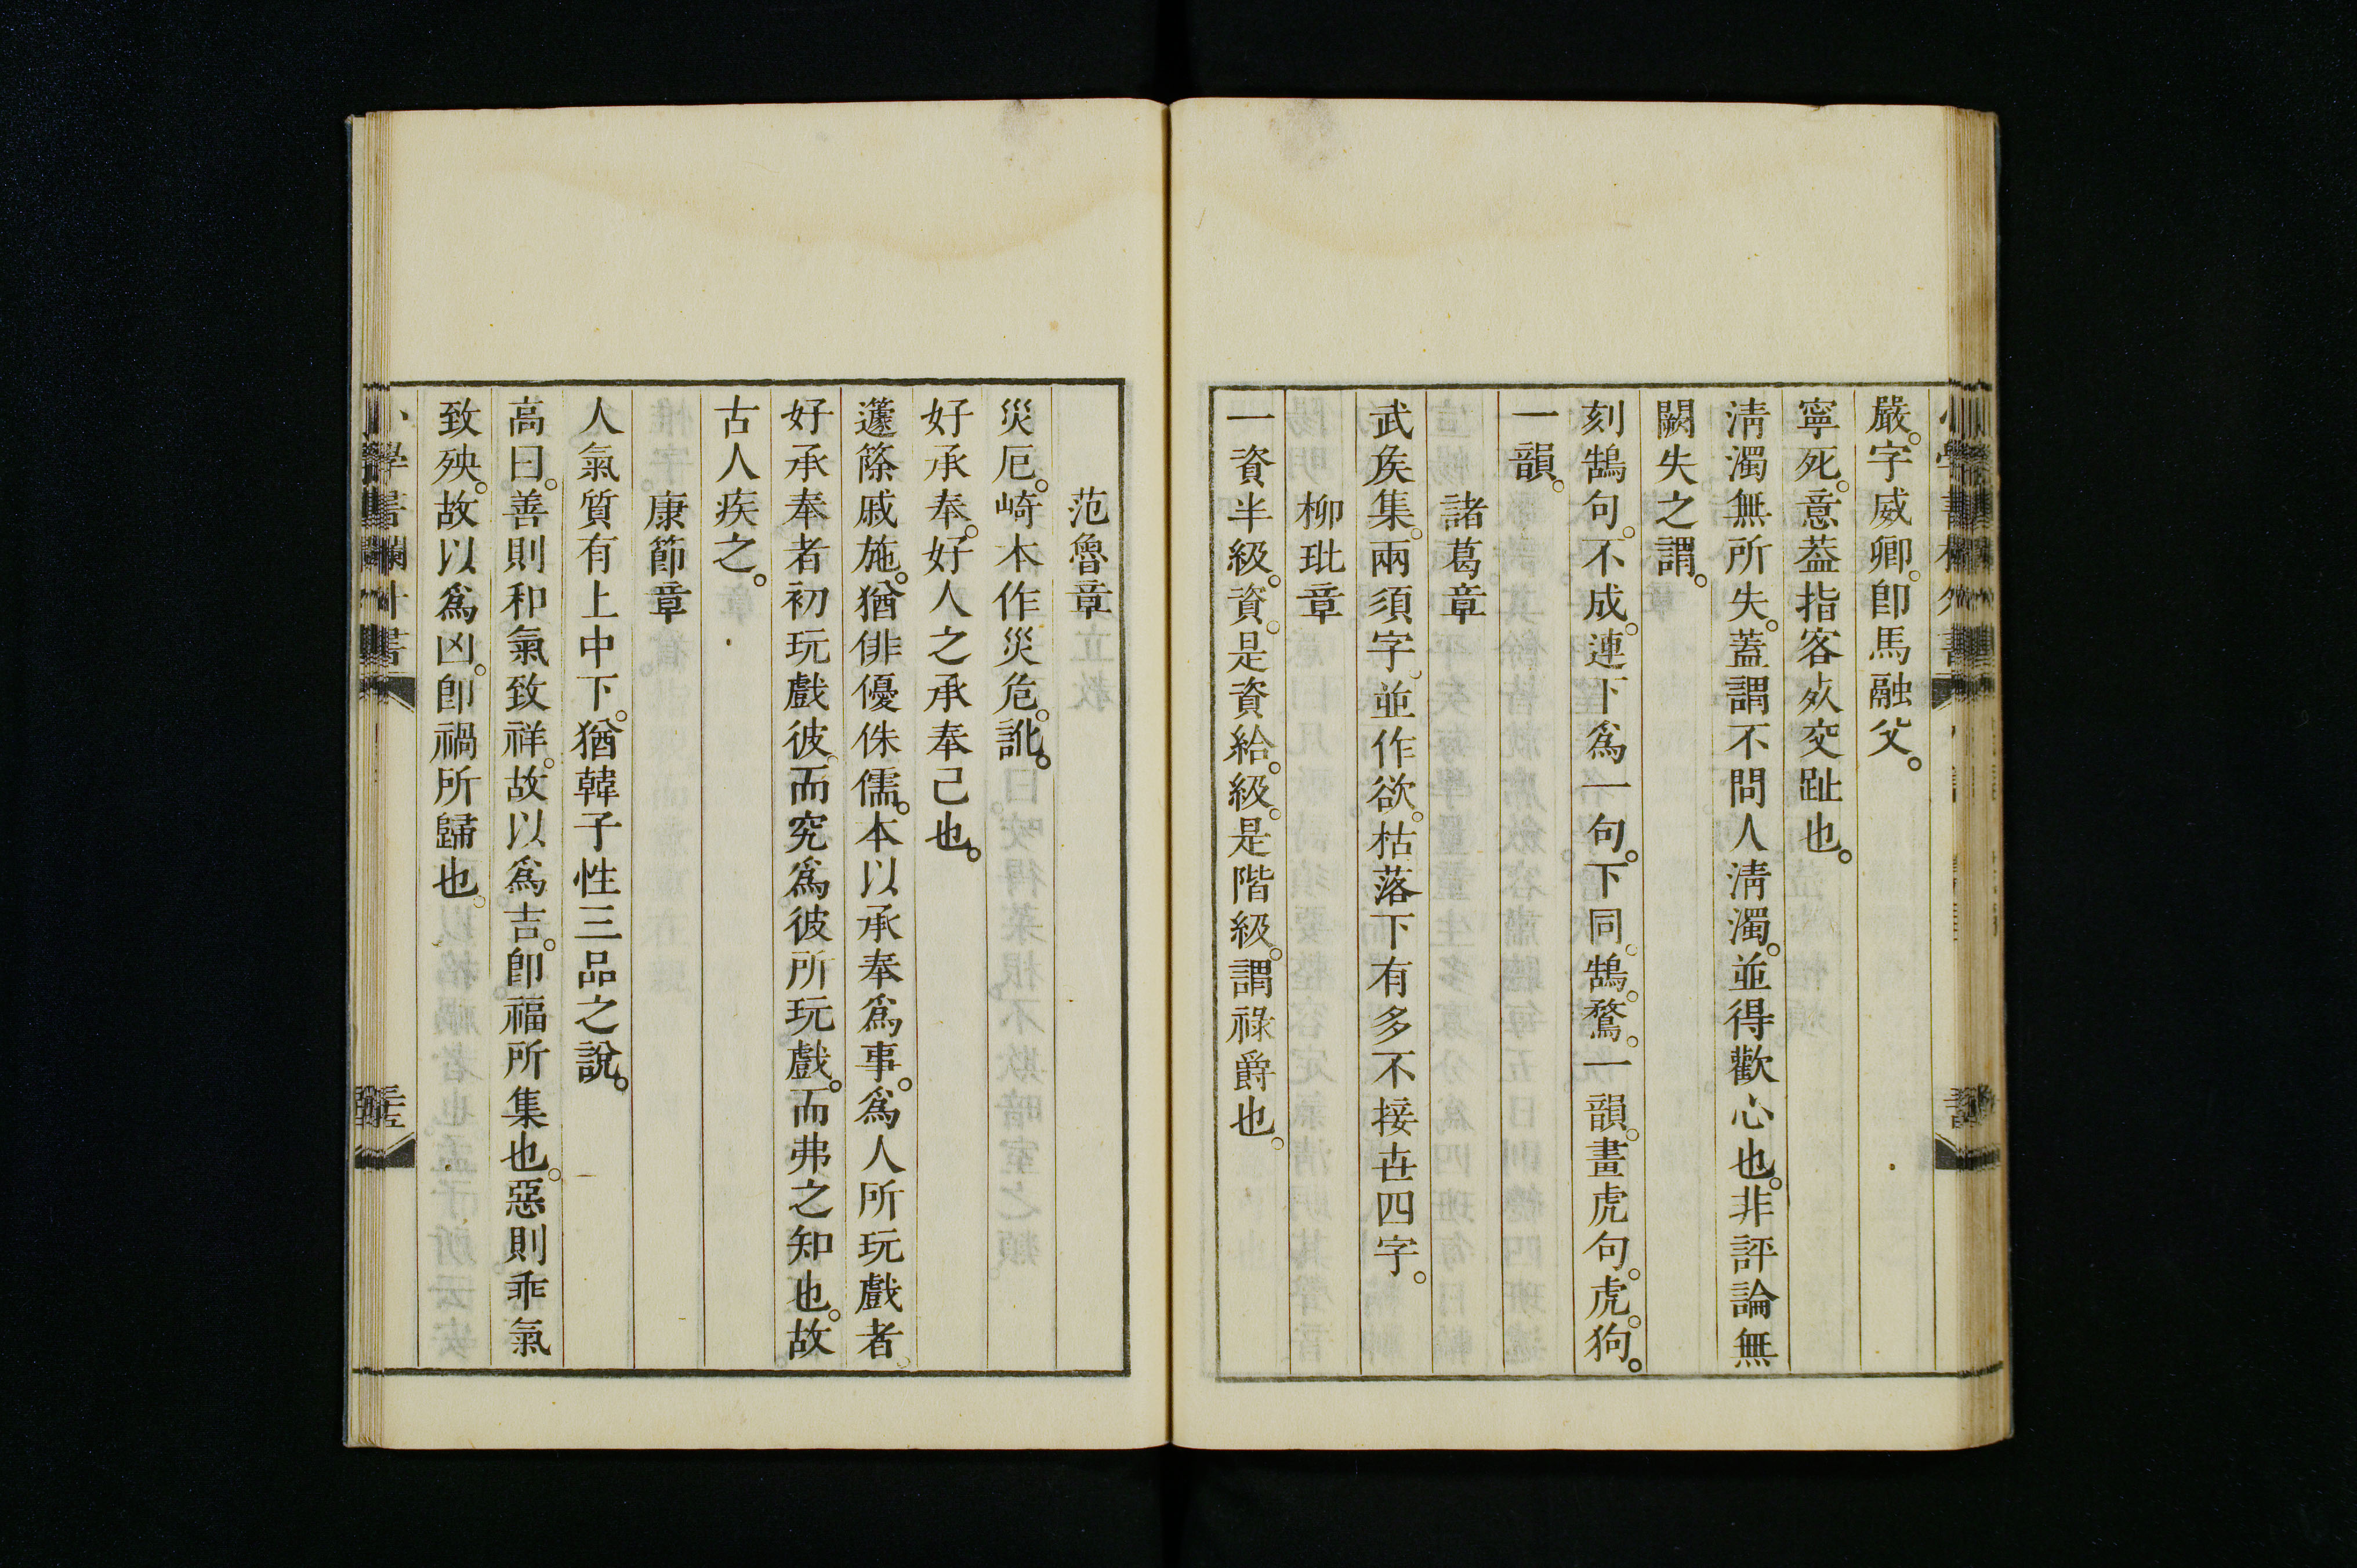 嚴。字威卿。卽馬融父。
寧死。意葢指客死交趾也。
淸濁無所失。蓋謂不問人淸濁。並得歡心也。非評論無
闕失之謂。
刻鵠句。不成。連下爲一句。下同。鵠。鶩。一韻。畫虎句。虎。狗。
一韻。
諸葛章
武矦集。兩須字。並作欲。枯落下有多不接世四字。
柳玭章
一資半級。資。是資給。級。是階級。謂祿爵也。
范魯章
災厄。崎本作災危。訛。
好承奉。好人之承奉己也。
蘧篨戚施。猶俳優侏儒。本以承奉爲事。爲人所玩戲者。
好承奉者初玩戲彼。而究爲彼所玩戲。而弗之知也。故
古人疾之。
康節章
人氣質有上中下。猶韓子性三品之說。
高曰。善則和氣致祥。故以爲吉。卽福所集也。惡則乖氣
致殃。故以爲凶。卽禍所歸也。
小學書欄外書